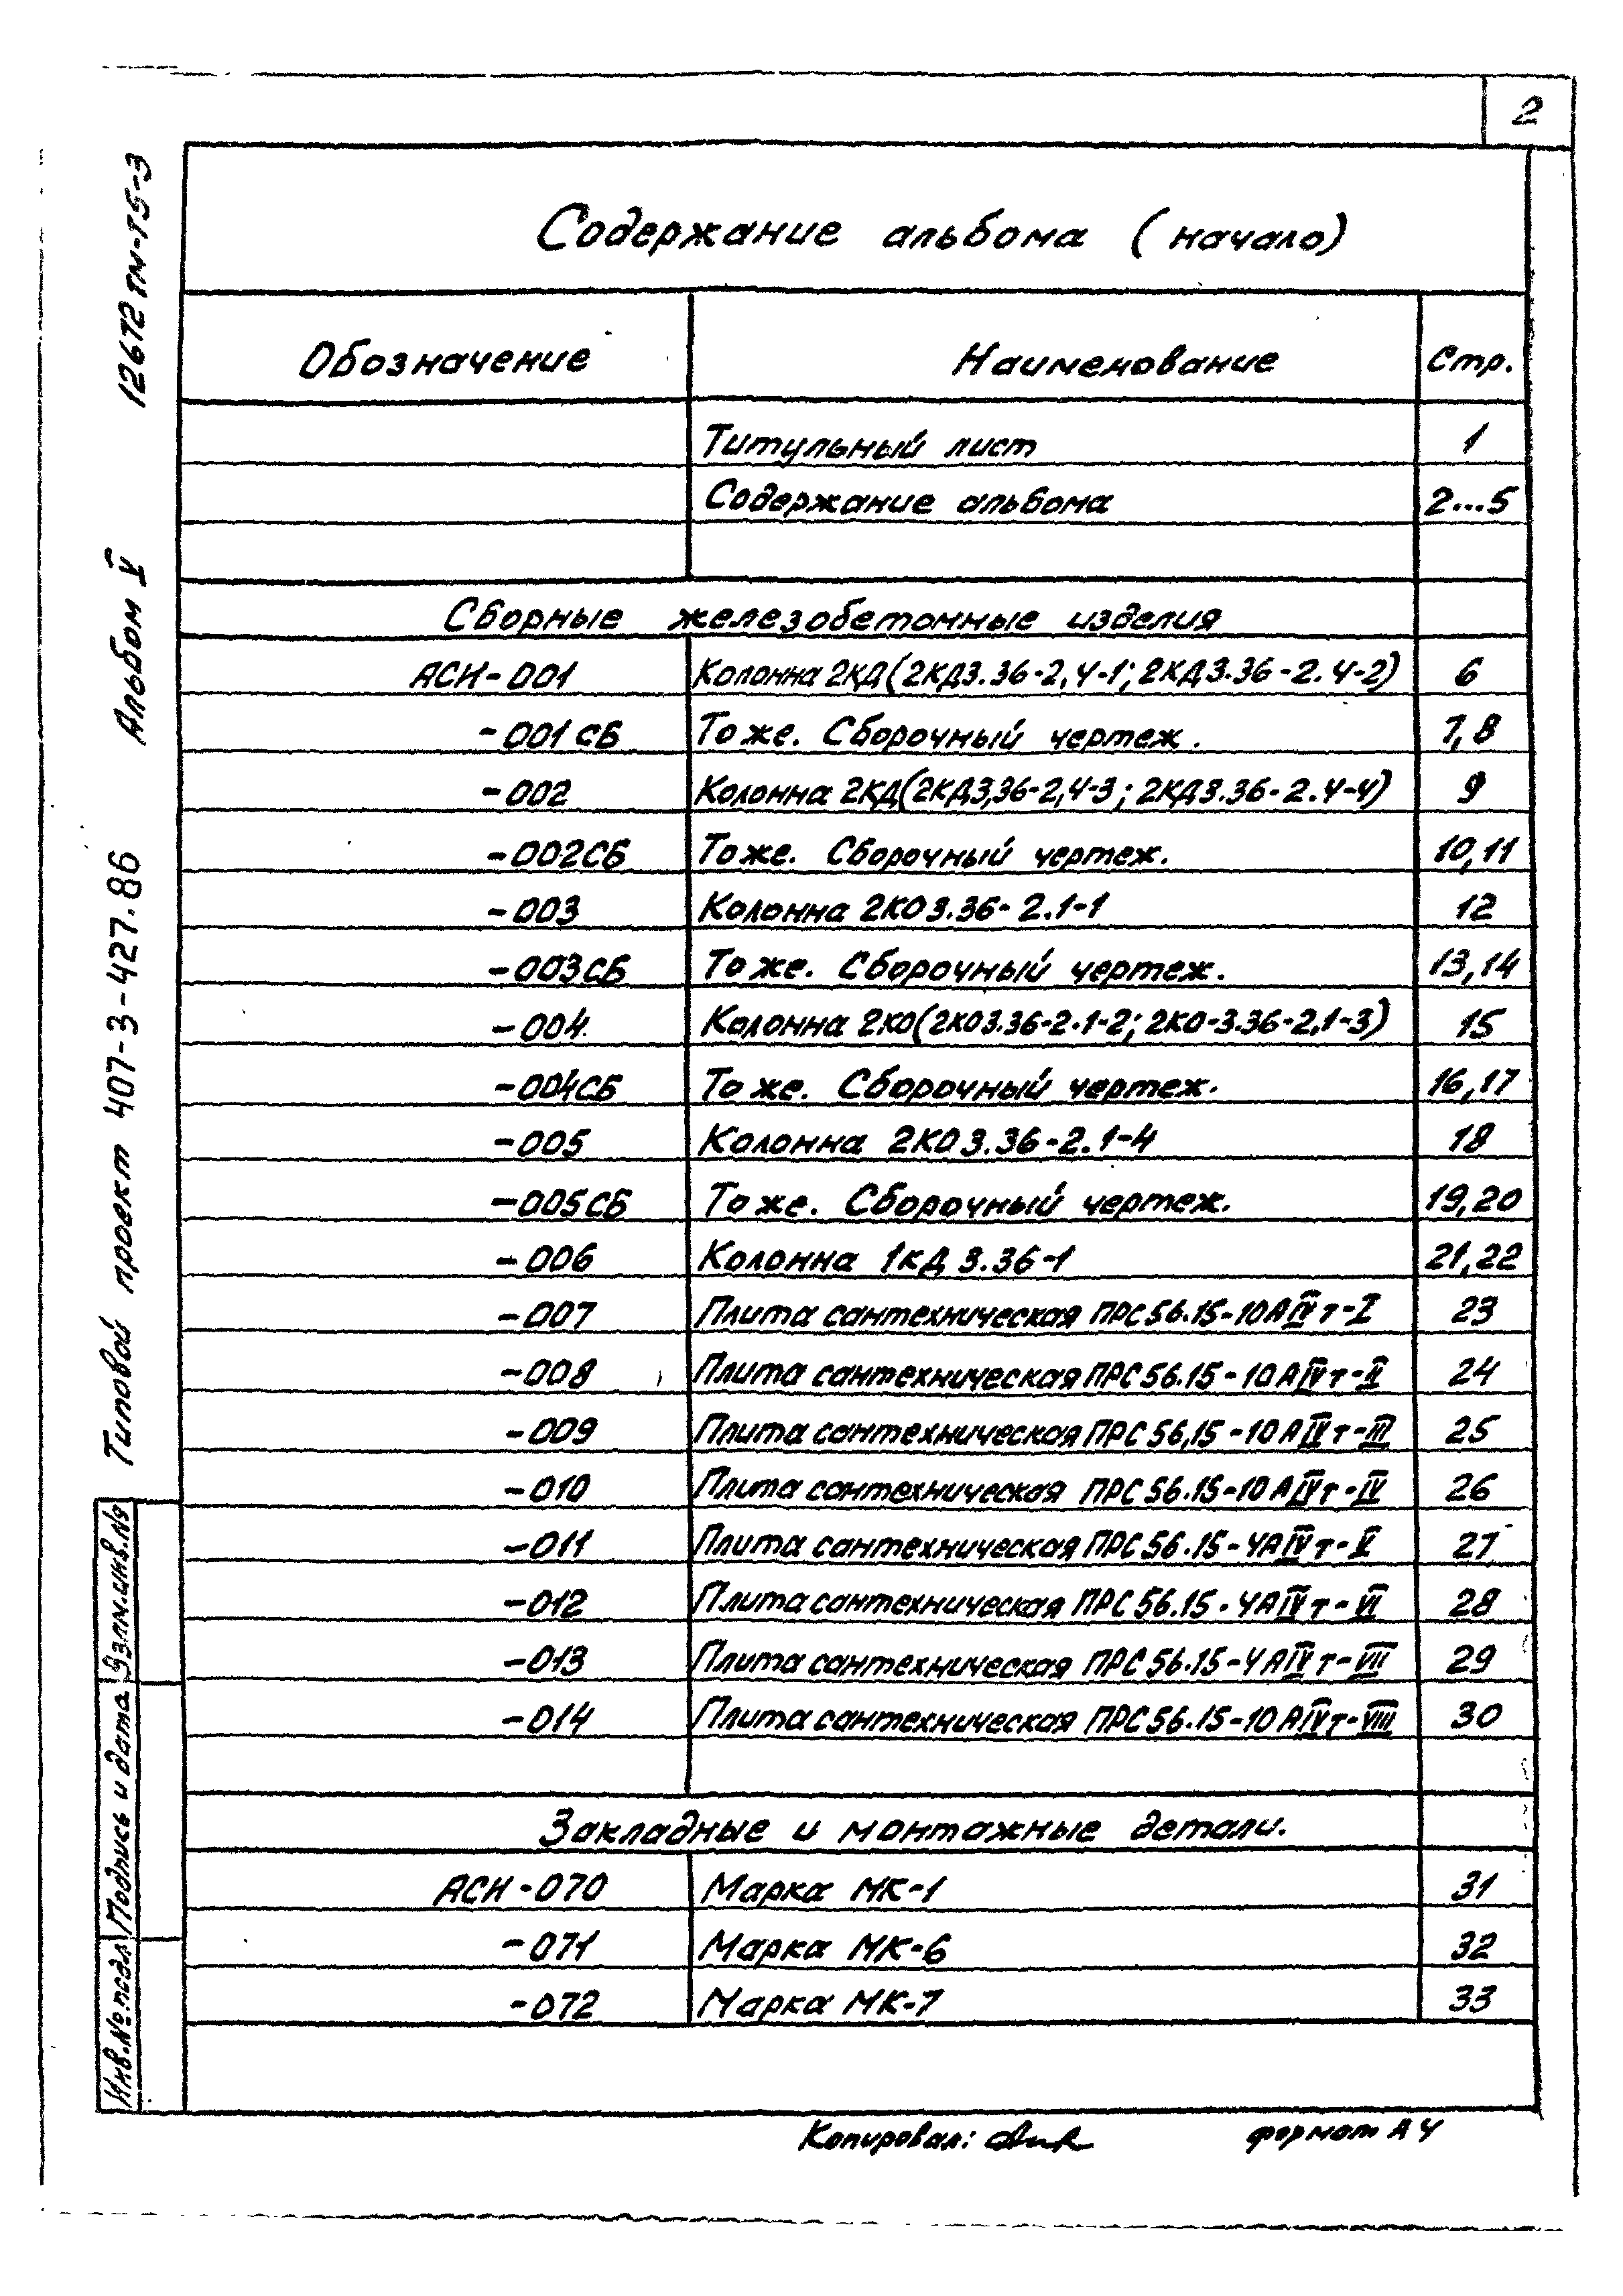 2
Содержание альбома (начало)
Обозначение Наименование Стр.
Титульный лист 1
Содержание альбома 2...5
Сборные железобетонные изделия
АСИ-001 Колонна 2КД(2КД3.36-2,4-1; 2КД3.36-2.4-2) 6
-001СБ То же. Сборочный чертеж. 7,8
-002 Колонна 2КД(2КД3,36-2,4-3; 2КД3.36-2.4-4) 9
-002СБ То же. Сборочный чертеж. 10,11
-003 Колонна 2КО3.36-2.1-1 12
-003СБ То же. Сборочный чертеж. 13,14
-004 Колонна 2КО(2КО3.36-2.1-2; 2КО-3.36-2,1-3) 15
-004СБ То же. Сборочный чертеж. 16,17
-005 Колонна 2КО3.36-2.1-4 18
-005СБ То же. Сборочный чертеж. 19,20
-006 Колонна 1КД3.36-1 21,22
-007 Плита сантехническая ПРС56.15-10АIVт-I 23
-008 Плита сантехническая ПРС56.15-10АIVт-II 24
-009 Плита сантехническая ПРС56,15-10АIVт-III 25
-010 Плита сантехническая ПРС56.15-10АIVт-IV 26
-011 Плита сантехническая ПРС56.15-4АIVт-V 27
-012 Плита сантехническая ПРС56.15-4АIVт-VI 28
-013 Плита сантехническая ПРС56.15-4АIVт-VII 29
-014 Плита сантехническая ПРС56.15-10АIVт-VIII 30
Закладные и монтажные детали.
АСИ-070 Марка МК-1 31
-071 Марка МК-6 32
-072 Марка МК-7 33
Копировал: формат А4
Типовой проект 407-3-427.86 Альбом V 12672тм-т5-3
Инв.№подл Подпись и дата Взам.инв.№